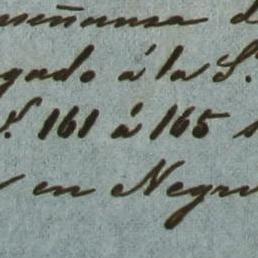 señansa d
gado á la S.
S. 161 á 165 s
en Negr